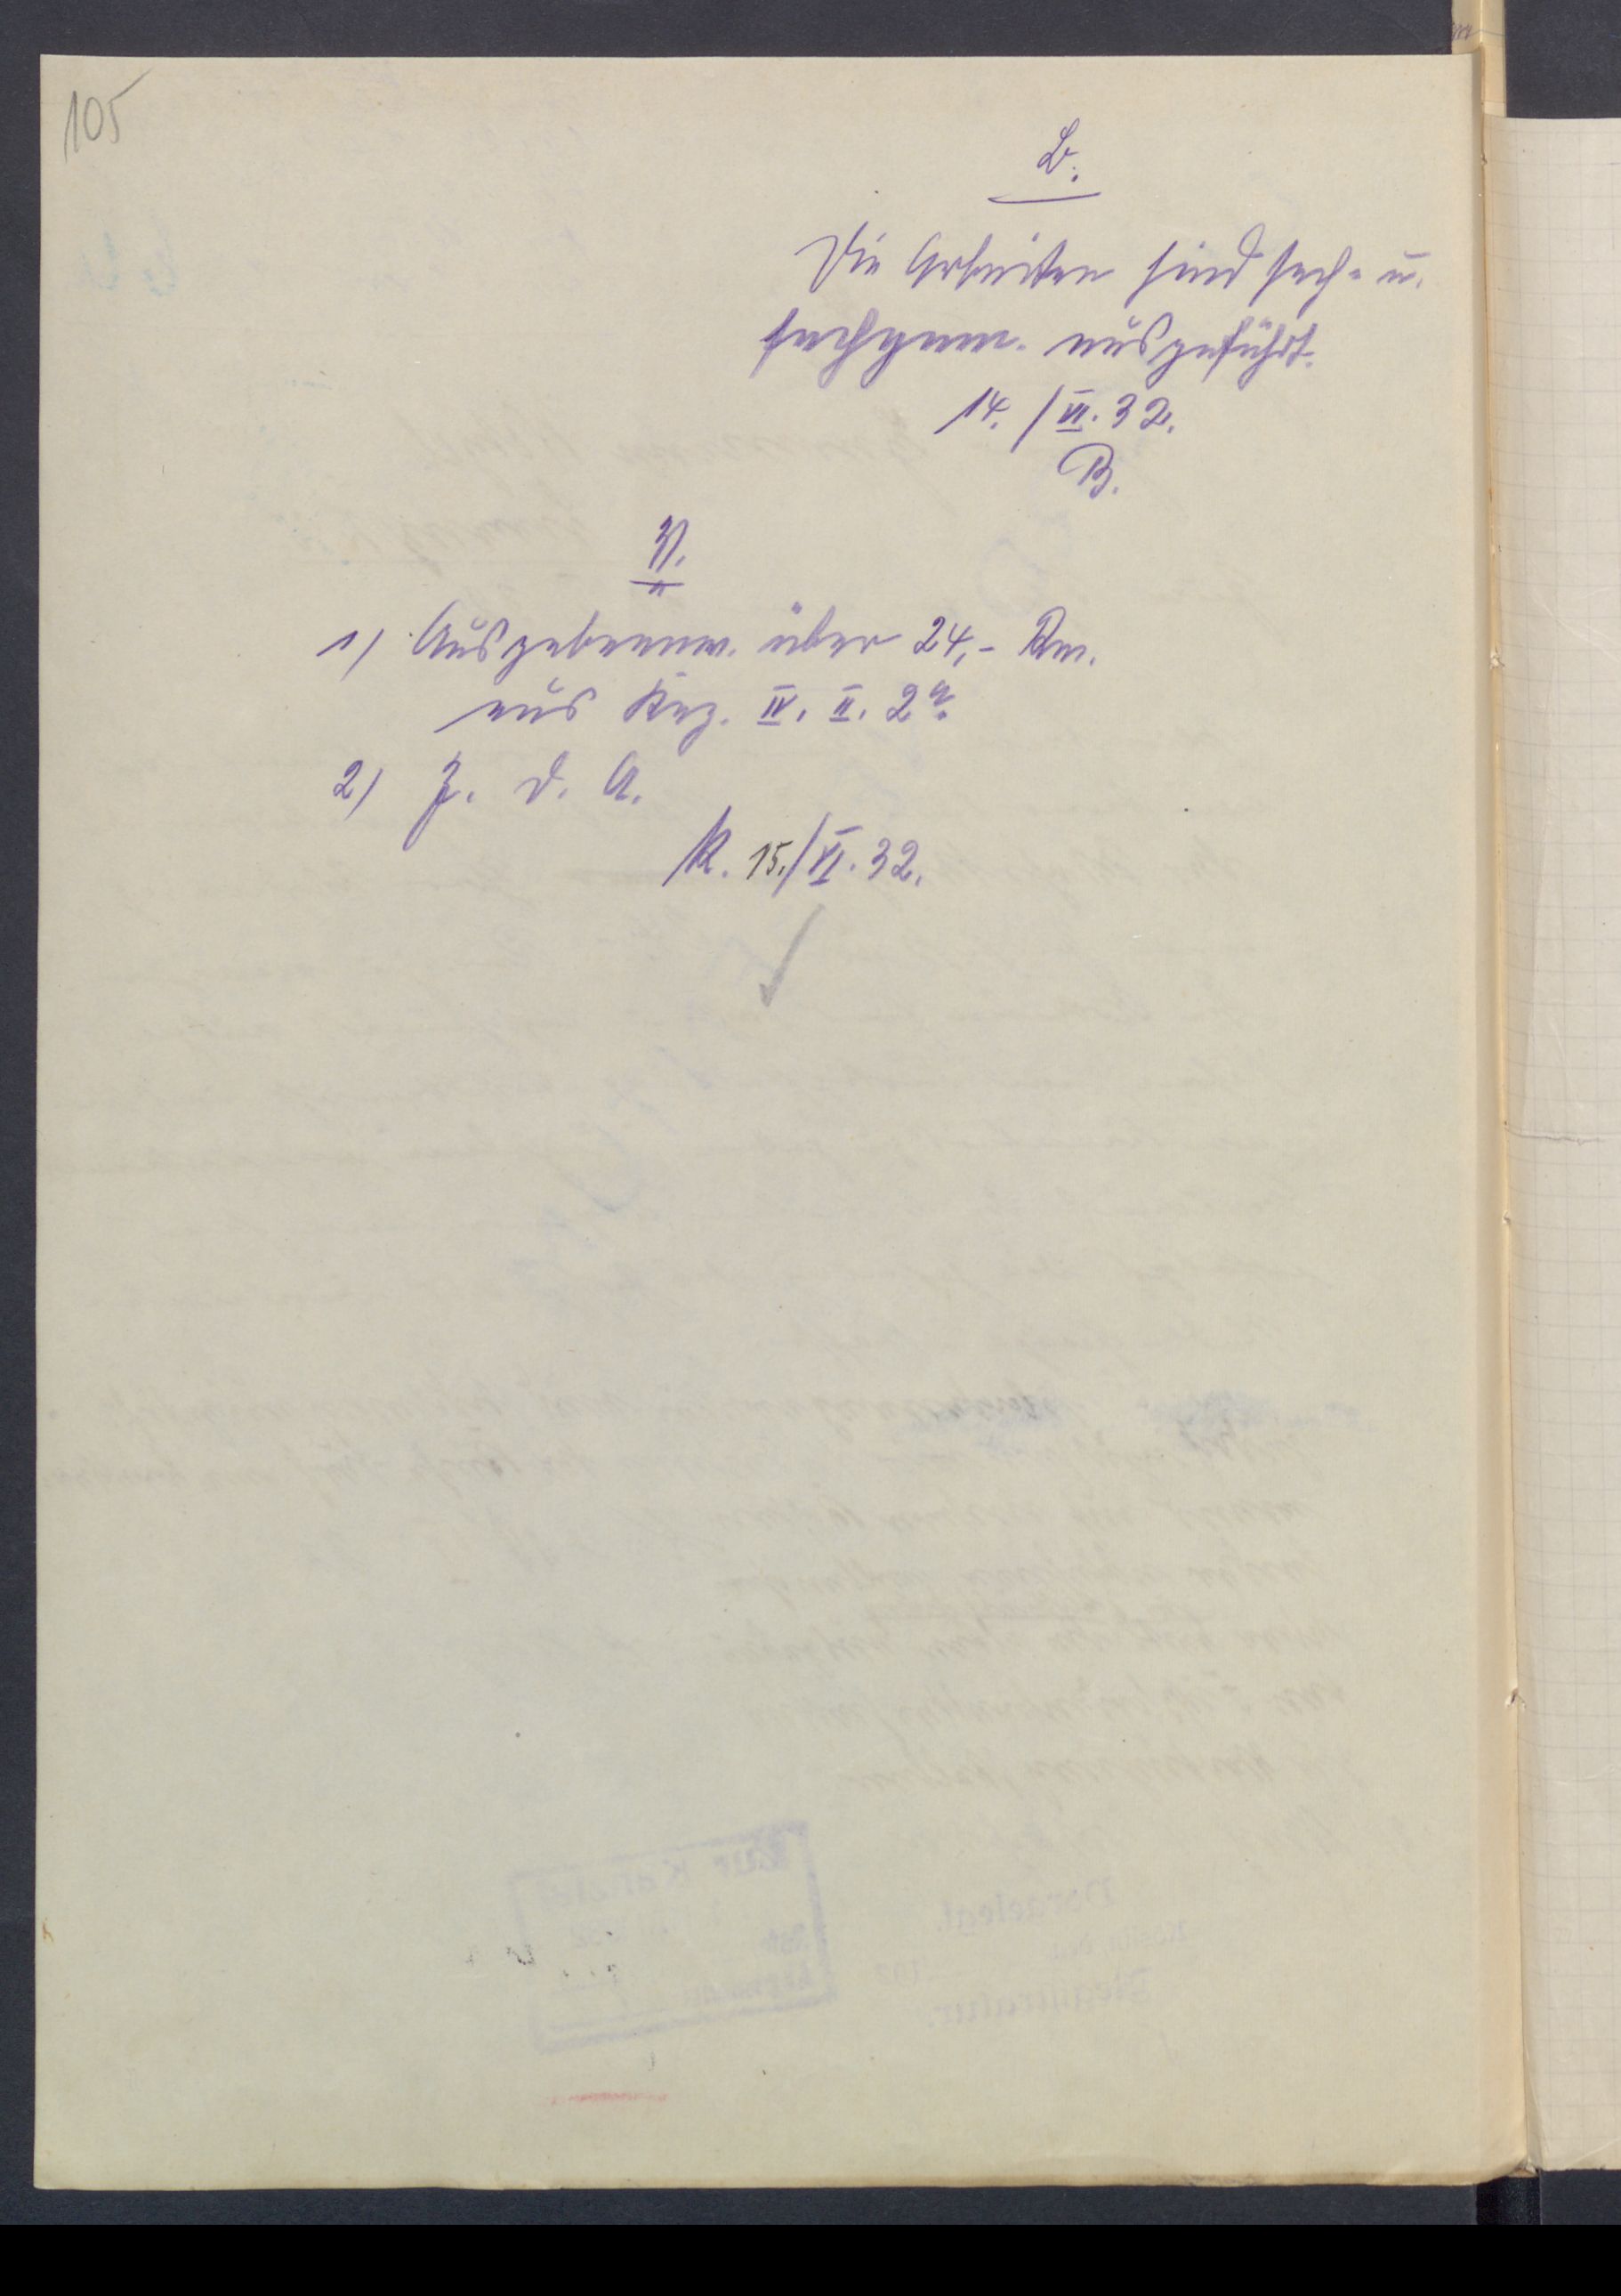 105
B.
Die Arbeiten sind sach- u.
fachgem. ausgeführt.
14./VI. 32.
B.
V.
1) Ausgabeanw. über 24,- Rm.
aus Kap. IV. II. 2a.
2) Z. d. A.
K. 15./VI. 32.